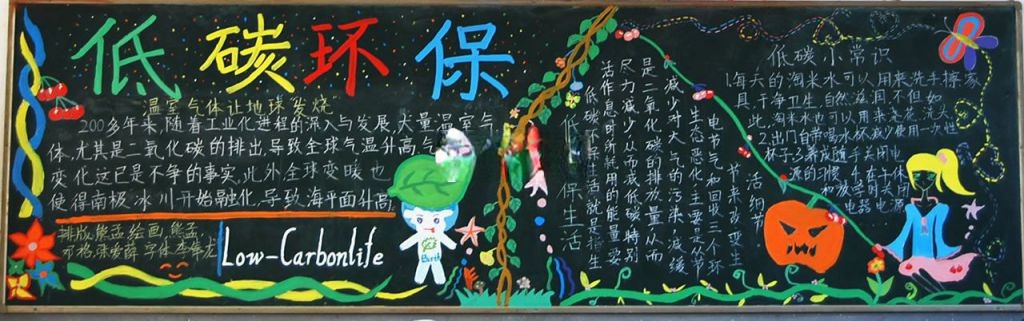 低碳环保
"温室气体让地球发烧"
200多年来,随着工业化进程的深入与发展,大量温室气
体,尤其是二氧化碳的排出,导致全球气温升高气
变化这已是不争的事实,此外全球变暖也
使得南极冰川开始融化,导致海平面升高
排版:熊孟 绘画:熊孟
Low-Carbonlife
Earth
低 保生活
低碳环保生活就是指生
活作息时所耗用的能量要
尽力减少从而减低碳,特别
是二氧化碳的排放量,从而
减少对大气的污染,减缓
生态恶化,主要是从节
电节气和回收三个环
节来改变生
活细节
低碳小常识
1.每天的淘米水可以用来洗手擦家
具,干净卫生,自然滋润,不但如
此,淘米水也可以用来浇花,洗大
2.出门自带喝水杯,减少使用一次性
杯子,3.养成随手关闭电
器电源